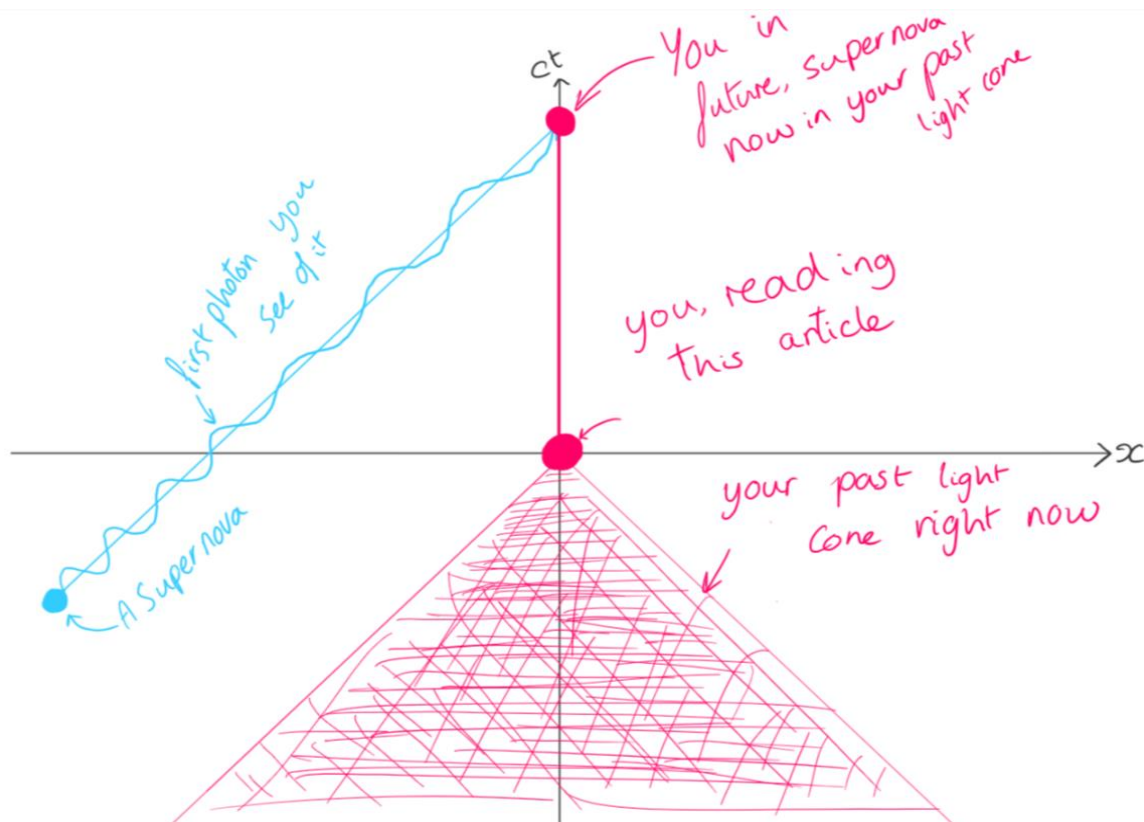 ct
You in
future, supernova
now in your past
light cone
first photon you
see of it
you, reading
this article
x
your past light
cone right now
A Supernova